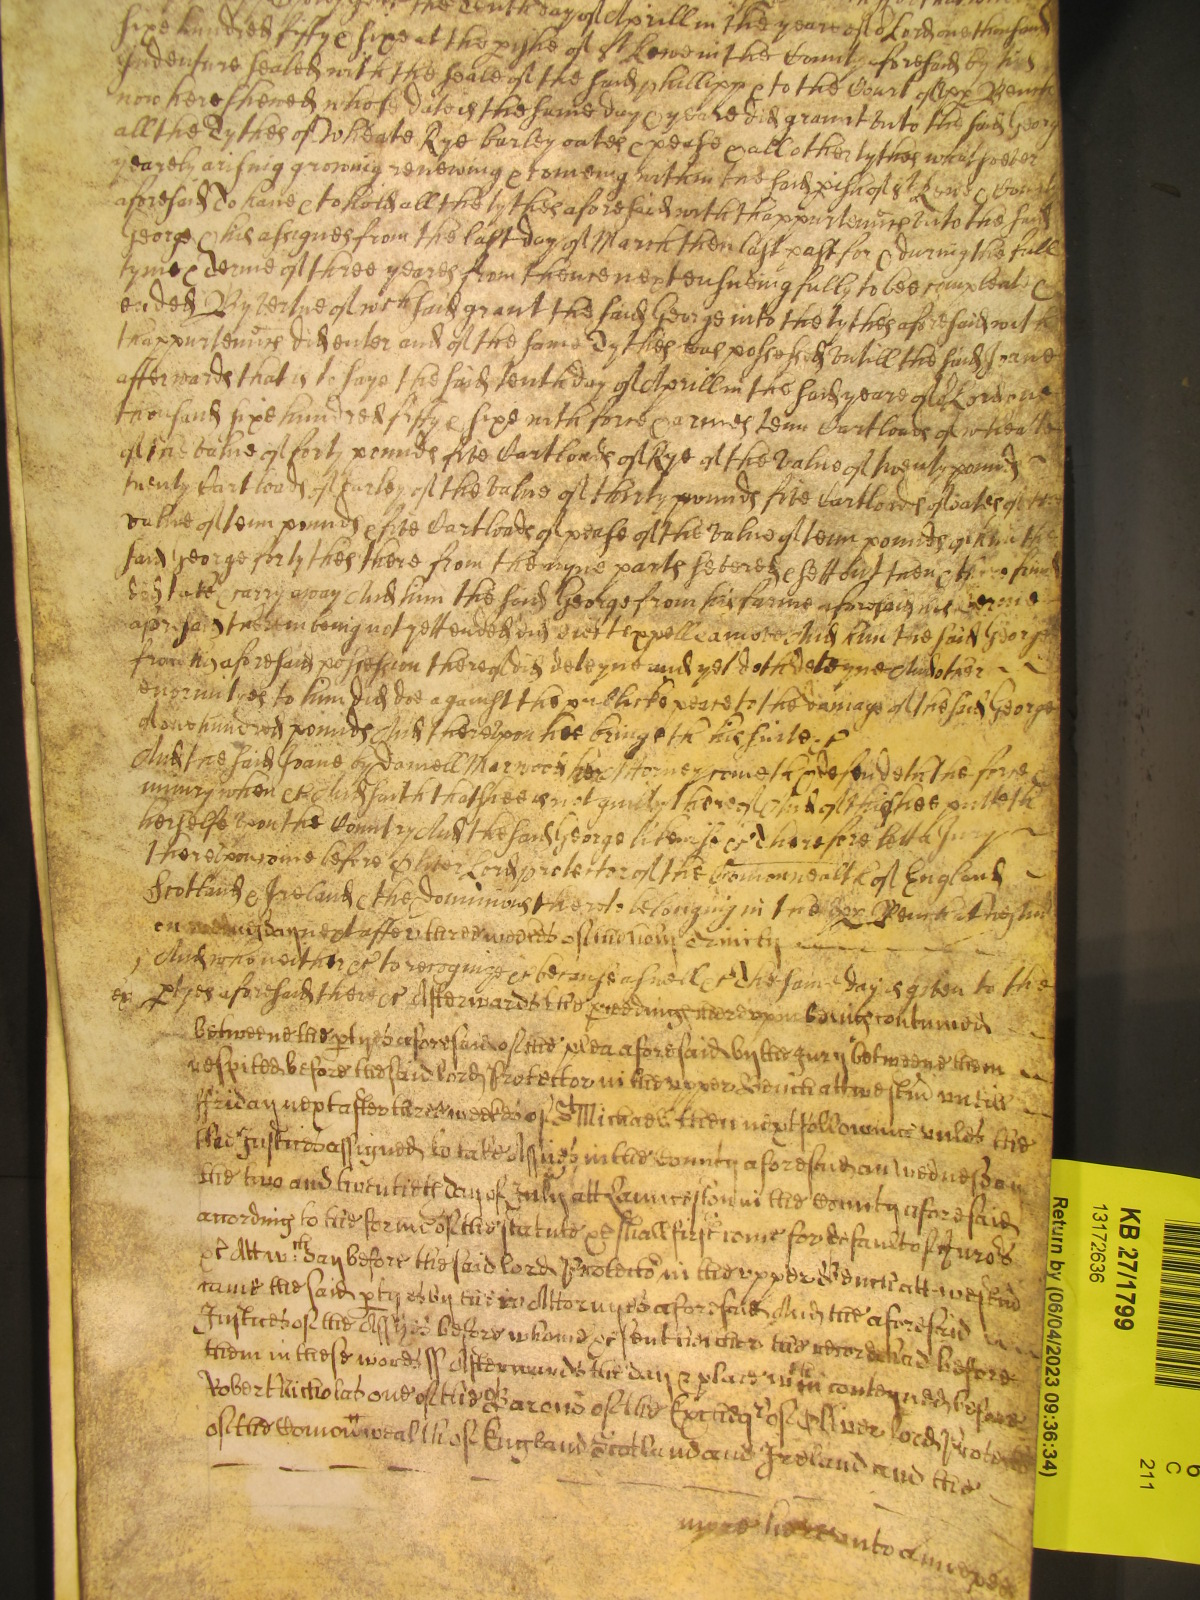 the tenth day of Aprill in the yeare of oʳ Lord one thousand
sixe hundred fifty & sixe at the pishe of Sᵗ Kewe in the County aforesaid by his
Indenture sealed with the seale of the said Phillipp & to the Court of upp Bench
now here shewed whose date is the same day & yeare did graunt unto the said George
all the Tythes of Wheate Rye barley oates & pease & all other tythes whatsoever
yearely arising growing renewing & comeing within the said pish of Sᵗ Kewe & County
aforesaid To have & to hold all the tythes aforesaid with thappurtenncs unto the said
George & his assignes from the last day of March then last past for & during the full
tyme & Terme of three yeares from thence next ensueing fully to bee compleate &
ended By vertue of wᶜʰ said grant the said George into the tythes aforesaid with
thappurtenncs did enter and of the same Tythes was possessed untill the said Joane
afterwards that is to saye the said tenth day of Aprill in the said yeare of oʳ Lord one
thousand sixe hundred fifty & sixe with force & armes tenn Cartloads of wheate
of the value of forty pounds five Cartloads of Rye of the value of twenty pounds
twenty Cartloads of barley of the value of thirty pounds five Cartloads of oates of the
value of tenn pounds & five Cartloads of pease of the value of tenn pounds of him the
said George for tythes there from the nyne parts severed & sett out then & there found
did take & carry away And him the said George from his farme aforesaid his Terme
aforesaid therein being not yett ended did eiect expell & amove And him the said George
from his aforesaid possession thereof did deteyne and yet doth deteyne And other
enormityes to him did doe against the publicke peace to the damage of the said George
of one hundred pounds And thereupon hee bringeth his suite &c
And the said Joane by Daniell Marwood her Attorney cometh & defendeth the force &
iniury when &c And saith that shee is not guilty thereof And of this shee putteth
herselfe upon the Country And the said George likewise &c Therefore lett a Jury
thereupon come before Oliver Lord protector of the Comonwealth of England
Scotland & Ireland & the dominions thereto belonging in the upp Bench at Westmr
on wednesday next after three weekes of the holy Trinity
And who neither &c to recognize &c because aswell &c The same day is given to the
ptyes aforesaid there &c Afterwards the pceedings thereupon being continued
betweene the ptyes aforesaid of the plea aforesaid by the Jury betweene them
respited before the said lord Protector in the upper Bench att westm untill
ffriday next after three weekes of Sᵗ Michael then next following unles the
the Justices assigned to take Assizes in the County aforesaid on wednesday
the two and twentieth day of July att Launceston in the County aforesaid
according to the forme of the statute &c shall first come for default of Jurors
&c Att wᶜʰ day before the said lord Protector in the upper Bench att westm
came the said ptyes by their Attornyes aforesaid And the aforesaid
Justices of the Assizes before whome &c sent hither the record had before
them in these words ss Afterwards the day & place within conteyned before
Robert Nicholas one of the Barons of the Excheqʳ of Oliver lord Protector
of the Comonwealth of England Scotland and Ireland and the
more hereunto annexed
KB 27/1799
13172636
Return by (06/04/2023 09:36:34)
6
C
211